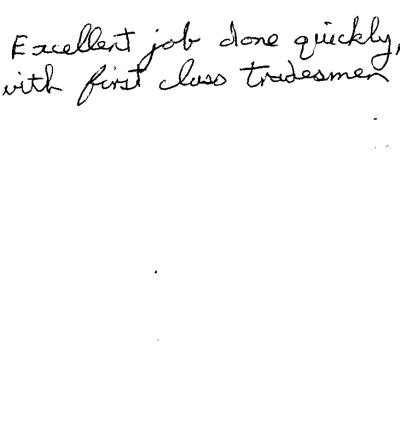 Excellent job done quickly,
with first class tradesmen